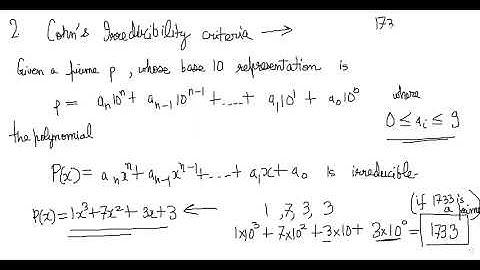 2 Cohn's Irreducibility criteria →
173
Given a prime p, whose base 10 representation is
p = aₙ10ⁿ + aₙ₋₁10ⁿ⁻¹ + ..... + a₁10¹ + a₀10⁰ where
0 ≤ aᵢ ≤ 9
the polynomial
P(x) = aₙxⁿ + aₙ₋₁xⁿ⁻¹ + ..... + a₁x + a₀ is irreducible
P(x) = 1x³ + 7x² + 3x + 3 ← 1, 7, 3, 3 (if 1733 is a prime)
1×10³ + 7×10² + 3×10 + 3×10⁰ = 1733